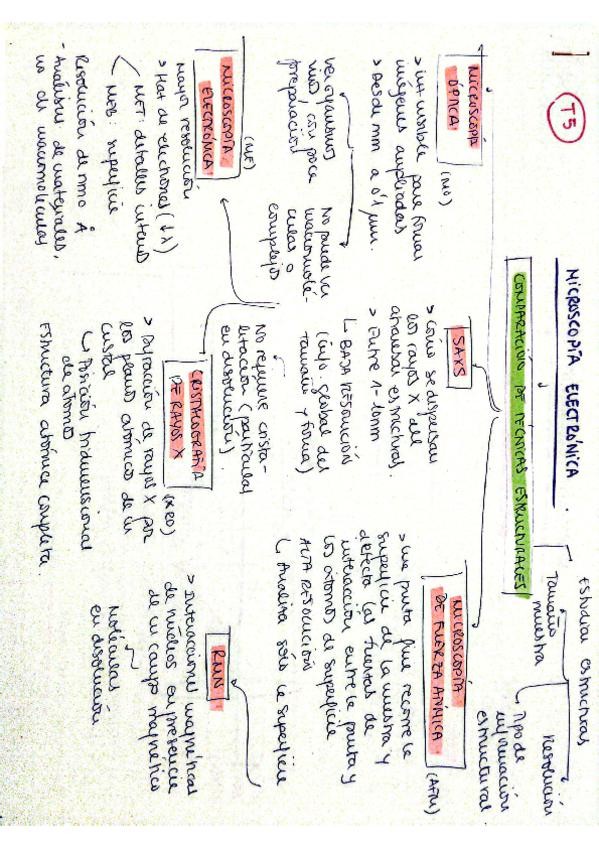 T5
MICROSCOPÍA ELECTRÓNICA.
COMPARACIÓN DE TÉCNICAS ESTRUCTURALES
Estudiar estructuras
Tamaño
muestra
Resolución
Tipo de
información
estructural
MICROSCOPÍA
ÓPTICA
(MO)
> luz visible para formar
imágenes ampliadas
> Desde mm a 0'1 μm.
Ver organismos
vivos, con poca
preparación
No puede ver
macromolé-
culas o
complejos
SAXS
> cómo se dispersan
los rayos X al
atravesar estructuras.
> Entre 1-10nm
↳ BAJA RESOLUCIÓN
(info. global del
tamaño y forma)
No requiere crista-
lización (partículas
en disolución).
MICROSCOPÍA
DE FUERZA ATÓMICA
(AFM)
> una punta fina recorre la
superficie de la muestra y
detecta las fuerzas de
interacción entre la punta y
los átomos de superficie
ALTA RESOLUCIÓN
↳ Analiza sólo la superficie
MICROSCOPÍA
ELECTRÓNICA
(ME)
Mayor resolución
> Haz de electrones (↓λ)
MET: detalles internos
MEB: superficie
Resolución de nm o Å
- Análisis de materiales,
no di macromoléculas
CRISTALOGRAFÍA
DE RAYOS X
(XRD)
> Difracción de rayos X por
los planos atómicos de un
cristal
↳ Posición tridimensional
de átomos
Estructura atómica completa.
RMN
> Interacciones magnéticas
de núcleos en presencia
de un campo magnético
Moléculas
en disolución